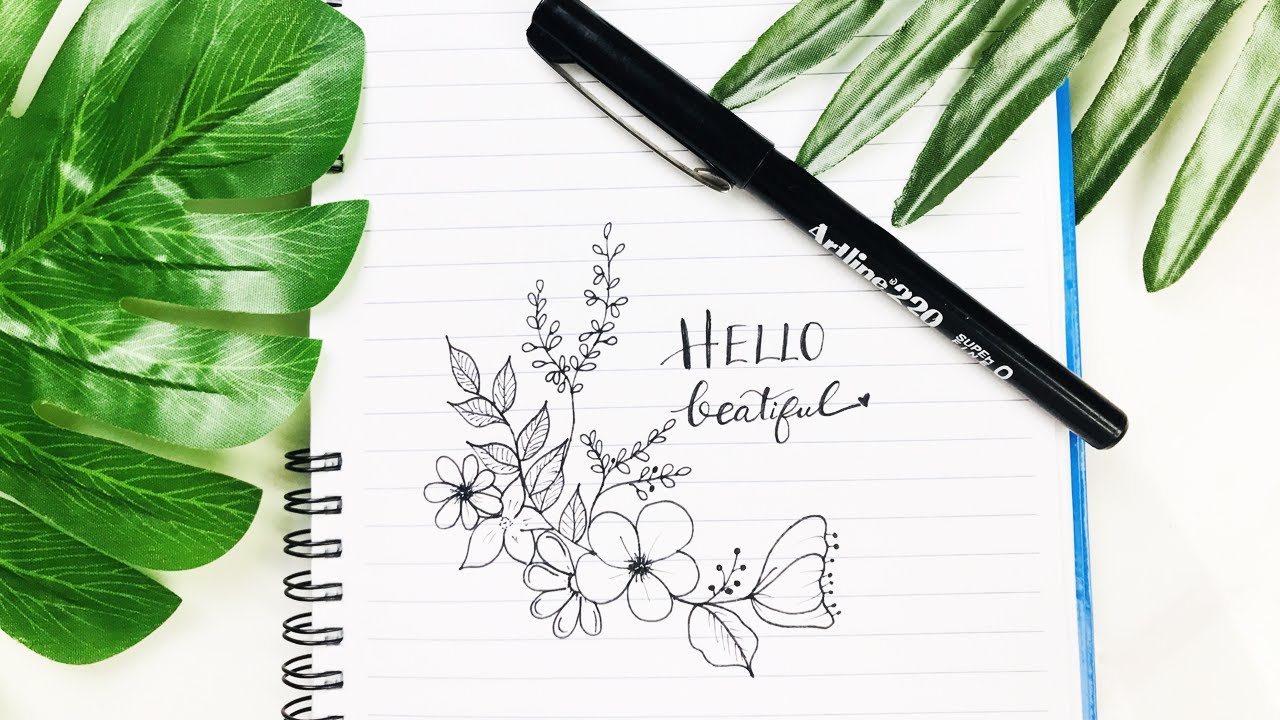 HELLO
beatiful
Artline 220
SUPER
FINE 0